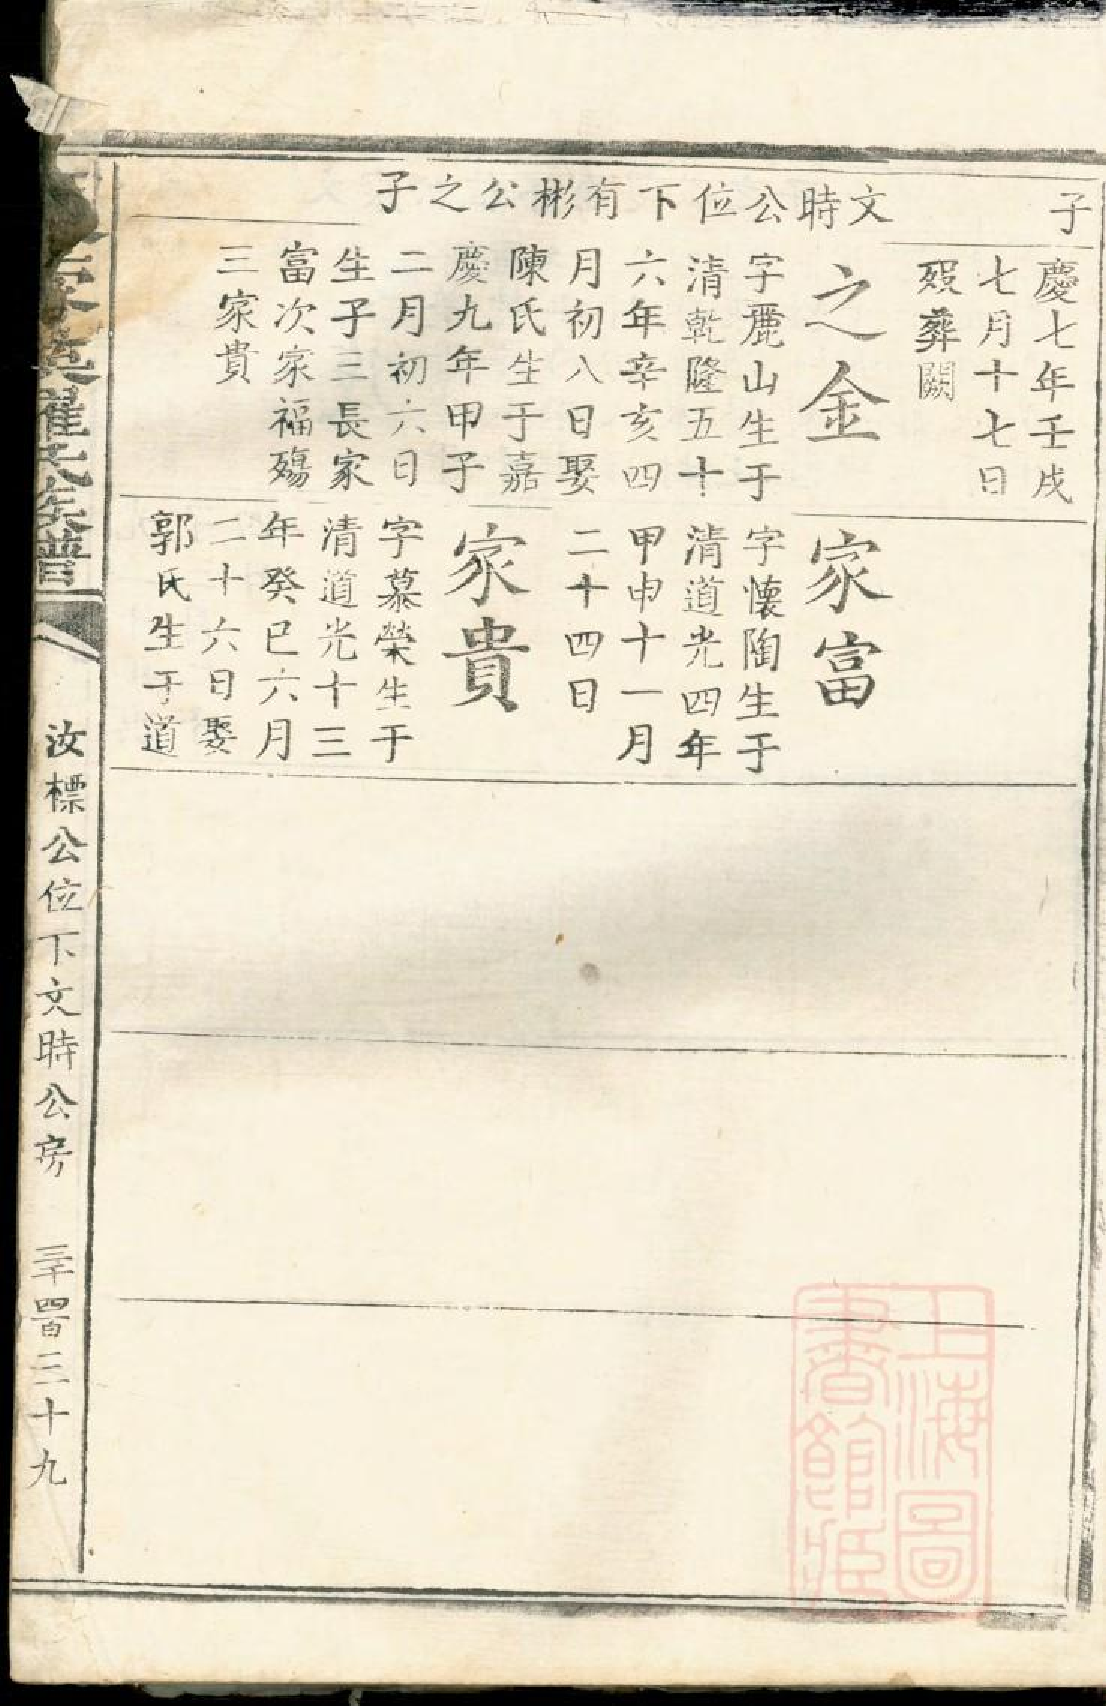 子
慶七年壬戌
七月十七日
歿葬闕
文時公位下有彬公之子
之金
字麗山生于
清乾隆五十
六年辛亥四
月初八日娶
陳氏生于嘉
慶九年甲子
二月初六日
生子三長家
富次家福殤
三家貴
家富
字懷陶生于
清道光四年
甲申十一月
二十四日
家貴
字慕榮生于
清道光十三
年癸巳六月
二十六日娶
郭氏生于道
羅氏族譜
汝標公位下文時公房
三千四百三十九
上海圖
書館藏